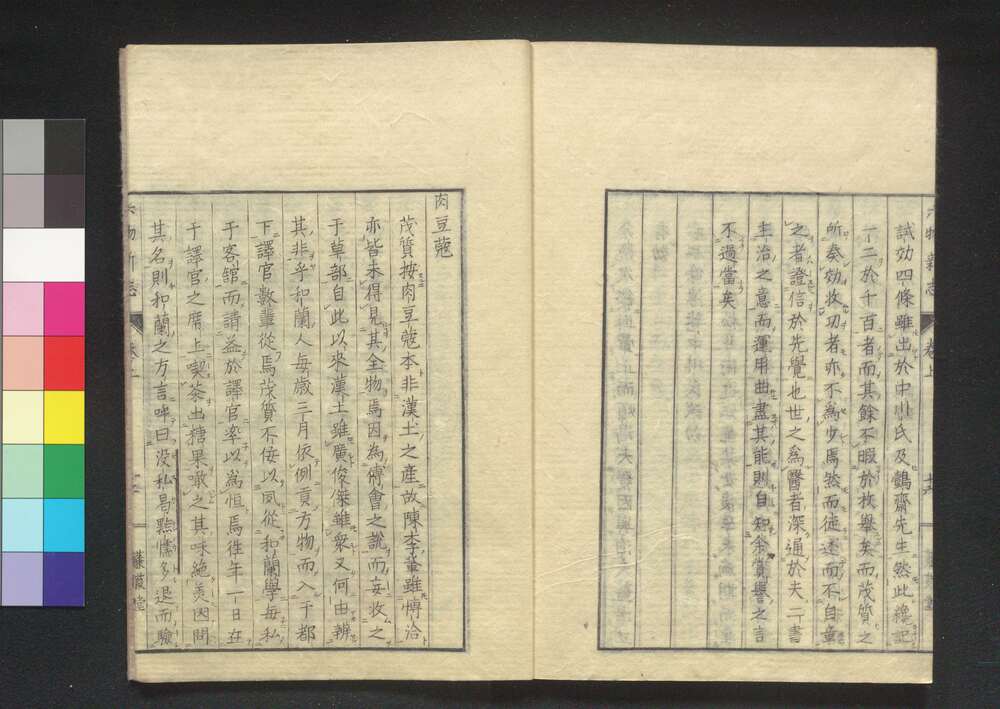 試効四條雖出於中川氏及鶴齋先生然此纔記
一二於千百者而其餘不暇於枚舉矣而茂質之
所奏効收功者亦不為少焉然而徒述而不自彰
之者證信於先覺也世之為醫者深通於夫二書
主治之意而運用曲盡其能則自知余賞譽之言
不過當矣
六物新志 卷上
蒹葭堂
肉豆蔻
茂質按肉豆蔻本非漢土之產故陳李輩雖博洽
亦皆未得見其全物焉因為傅會之說而妄收之
于草部自此以來漢土雖廣俊傑雖衆又何由辨
其非乎和蘭人每歲三月依例貢方物而入于都
下譯官數輩從焉茂質不佞以夙從和蘭學每私
于客舘而請益於譯官率以為恒焉往年一日在
于譯官之席上喫茶出糖果噉之其味絕美因問
其名則和蘭之方言呼曰没私曷㸃多退而驗
六物新志 卷上
蒹葭堂